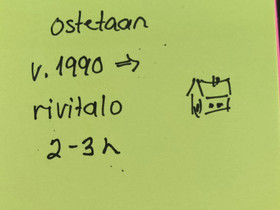 ostetaan
v. 1990 ⇒
rivitalo
2-3 h